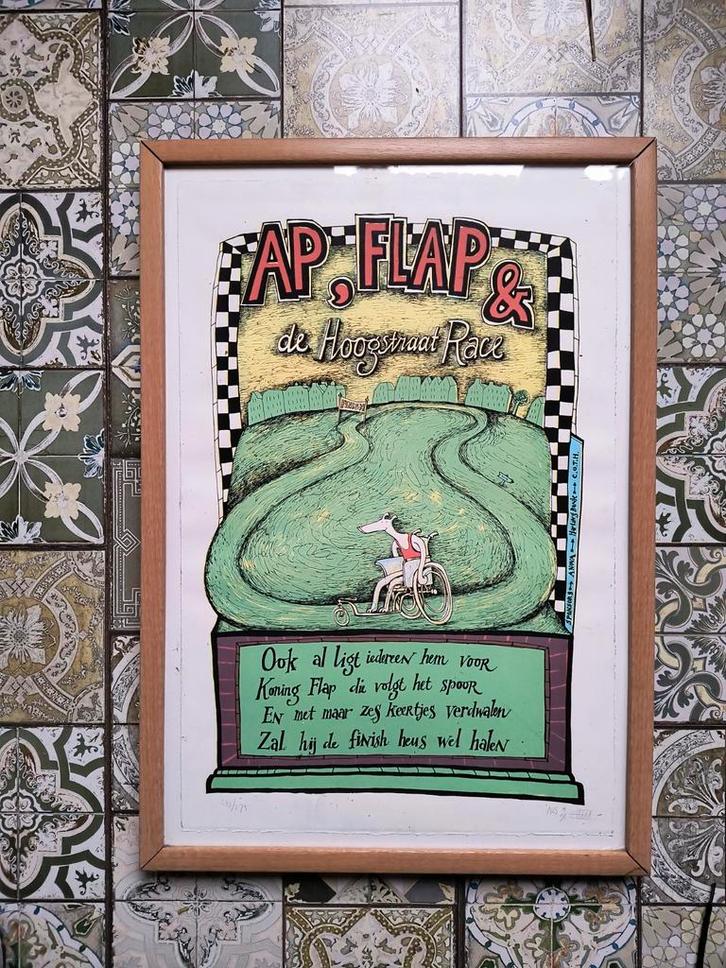 AP, FLAP &
de Hoogstraat Race
SPONSORS → ANWA → Harlingsbank → C.O.T.H.
Ook al ligt iedereen hem voor
Koning Flap die volgt het spoor
En met maar zes keertjes verdwalen
Zal hij de finish heus wel halen